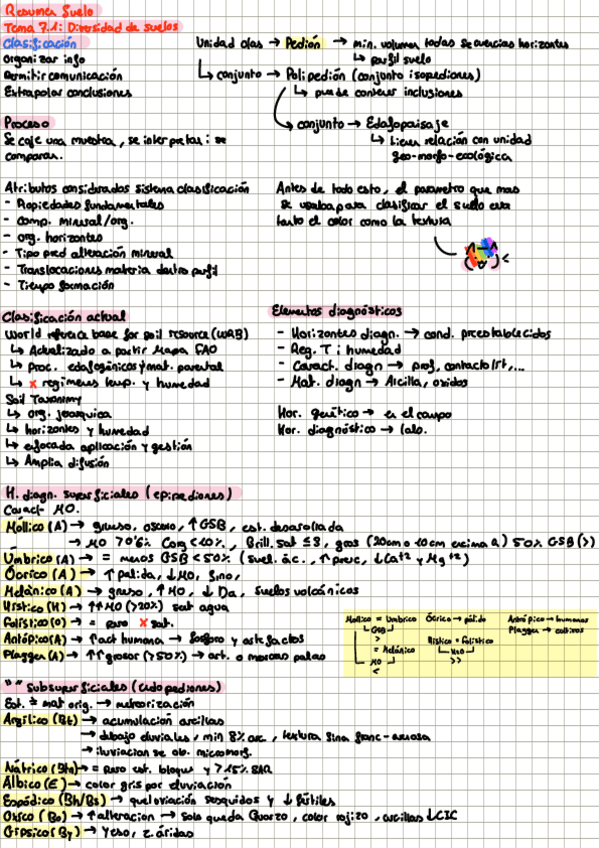 Resumen Suelo
Tema 7.1: Diversidad de suelos
Clasificación
Organizar info
Permitir comunicación
Extrapolar conclusiones
Unidad clas → Pedión → min. volumen todas secuencias horizontes
↳ perfil suelo
↳ conjunto → Polipedión (conjunto isopediones)
↳ puede contener inclusiones
conjunto → Edafopaisaje
↳ tienen relación con unidad
geo-morfo-ecológica
Proceso
Se coje una muestra, se interpreta i se
comparas.
Atributos considerados sistema clasificación
- Propiedades fundamentales
- Comp. mineral/org.
- org. horizontes
- Tipo pred alteración mineral
- Translocaciones materia dentro perfil
- Tiempo formación
Antes de todo esto, el parametro que mas
se usaba para clasificar el suelo era
tanto el color como la textura
Clasificación actual
World reference base for soil resource (WRB)
↳ Actualizado a partir Mapa FAO
↳ proc. edafogénicos y mat. parental
↳ x regimenes temp. y humedad
Soil Taxonomy
↳ org. jerarquica
↳ horizontes y humedad
↳ enfocada aplicación y gestión
↳ Amplia difusión
Elementos diagnósticos
- Horizontes diagn. → cond. preestablecidos
- Reg. T i humedad
- Caract. diagn → prof, contacto lít,...
- Mat. diagn → Arcilla, oxidos
Hor. genético → en el campo
Hor. diagnóstico → labo.
H. diagn. superficiales (epipediones)
Caract MO.
Móllico (A) → grueso, oscuro, ↑GSB, est. desarollada
→ MO >0'6% Corg <10%, Brill. sat ≤3, gros (20cm o 10cm encima R) 50% GSB (>)
Úmbrico (A) → = menos GSB <50% (suel. ác., ↑prec, ↓Ca+2 y Mg+2)
Ócrico (A) → ↑palida, ↓MO, fino,
Melánico (A) → grueso, ↑MO, ↓Da, suelos volcánicos
Hístico (H) → ↑↑MO (>20%) sat agua
Folístico (O) → = pero x sat.
Antópico (A) → ↑act humana → fosforo y artefactos
Plaggen (A) → ↑↑grosor (>50%) → art. o marcas palas
Mollico = Umbrico Ócrico → pálido Antrópico → humanos
GSB Plaggen → cultivos
>
= Melánico Hístico = Folístico
MO MO
< >>
" " Subsuperficiales (endopediones)
Est. ≠ mat orig. → meteorización
Argílico (Bt) → acumulación arcillas
→ debajo eluviales, min 8% arc, textura fina franc-arenosa
→ iluviacion se ob. micromorf.
Nátrico (Btn) → = pero est. bloques y >15% SAR
Álbico (E) → color gris por eluviación
Espódico (Bh/Bs) → queluviación sesquidos y ↓ fértiles
Óxico (Bo) → ↑alteracion → solo queda Quarzo, color rojizo, arcillas ↓CIC
Gípsico (By) → Yeso, z. áridas